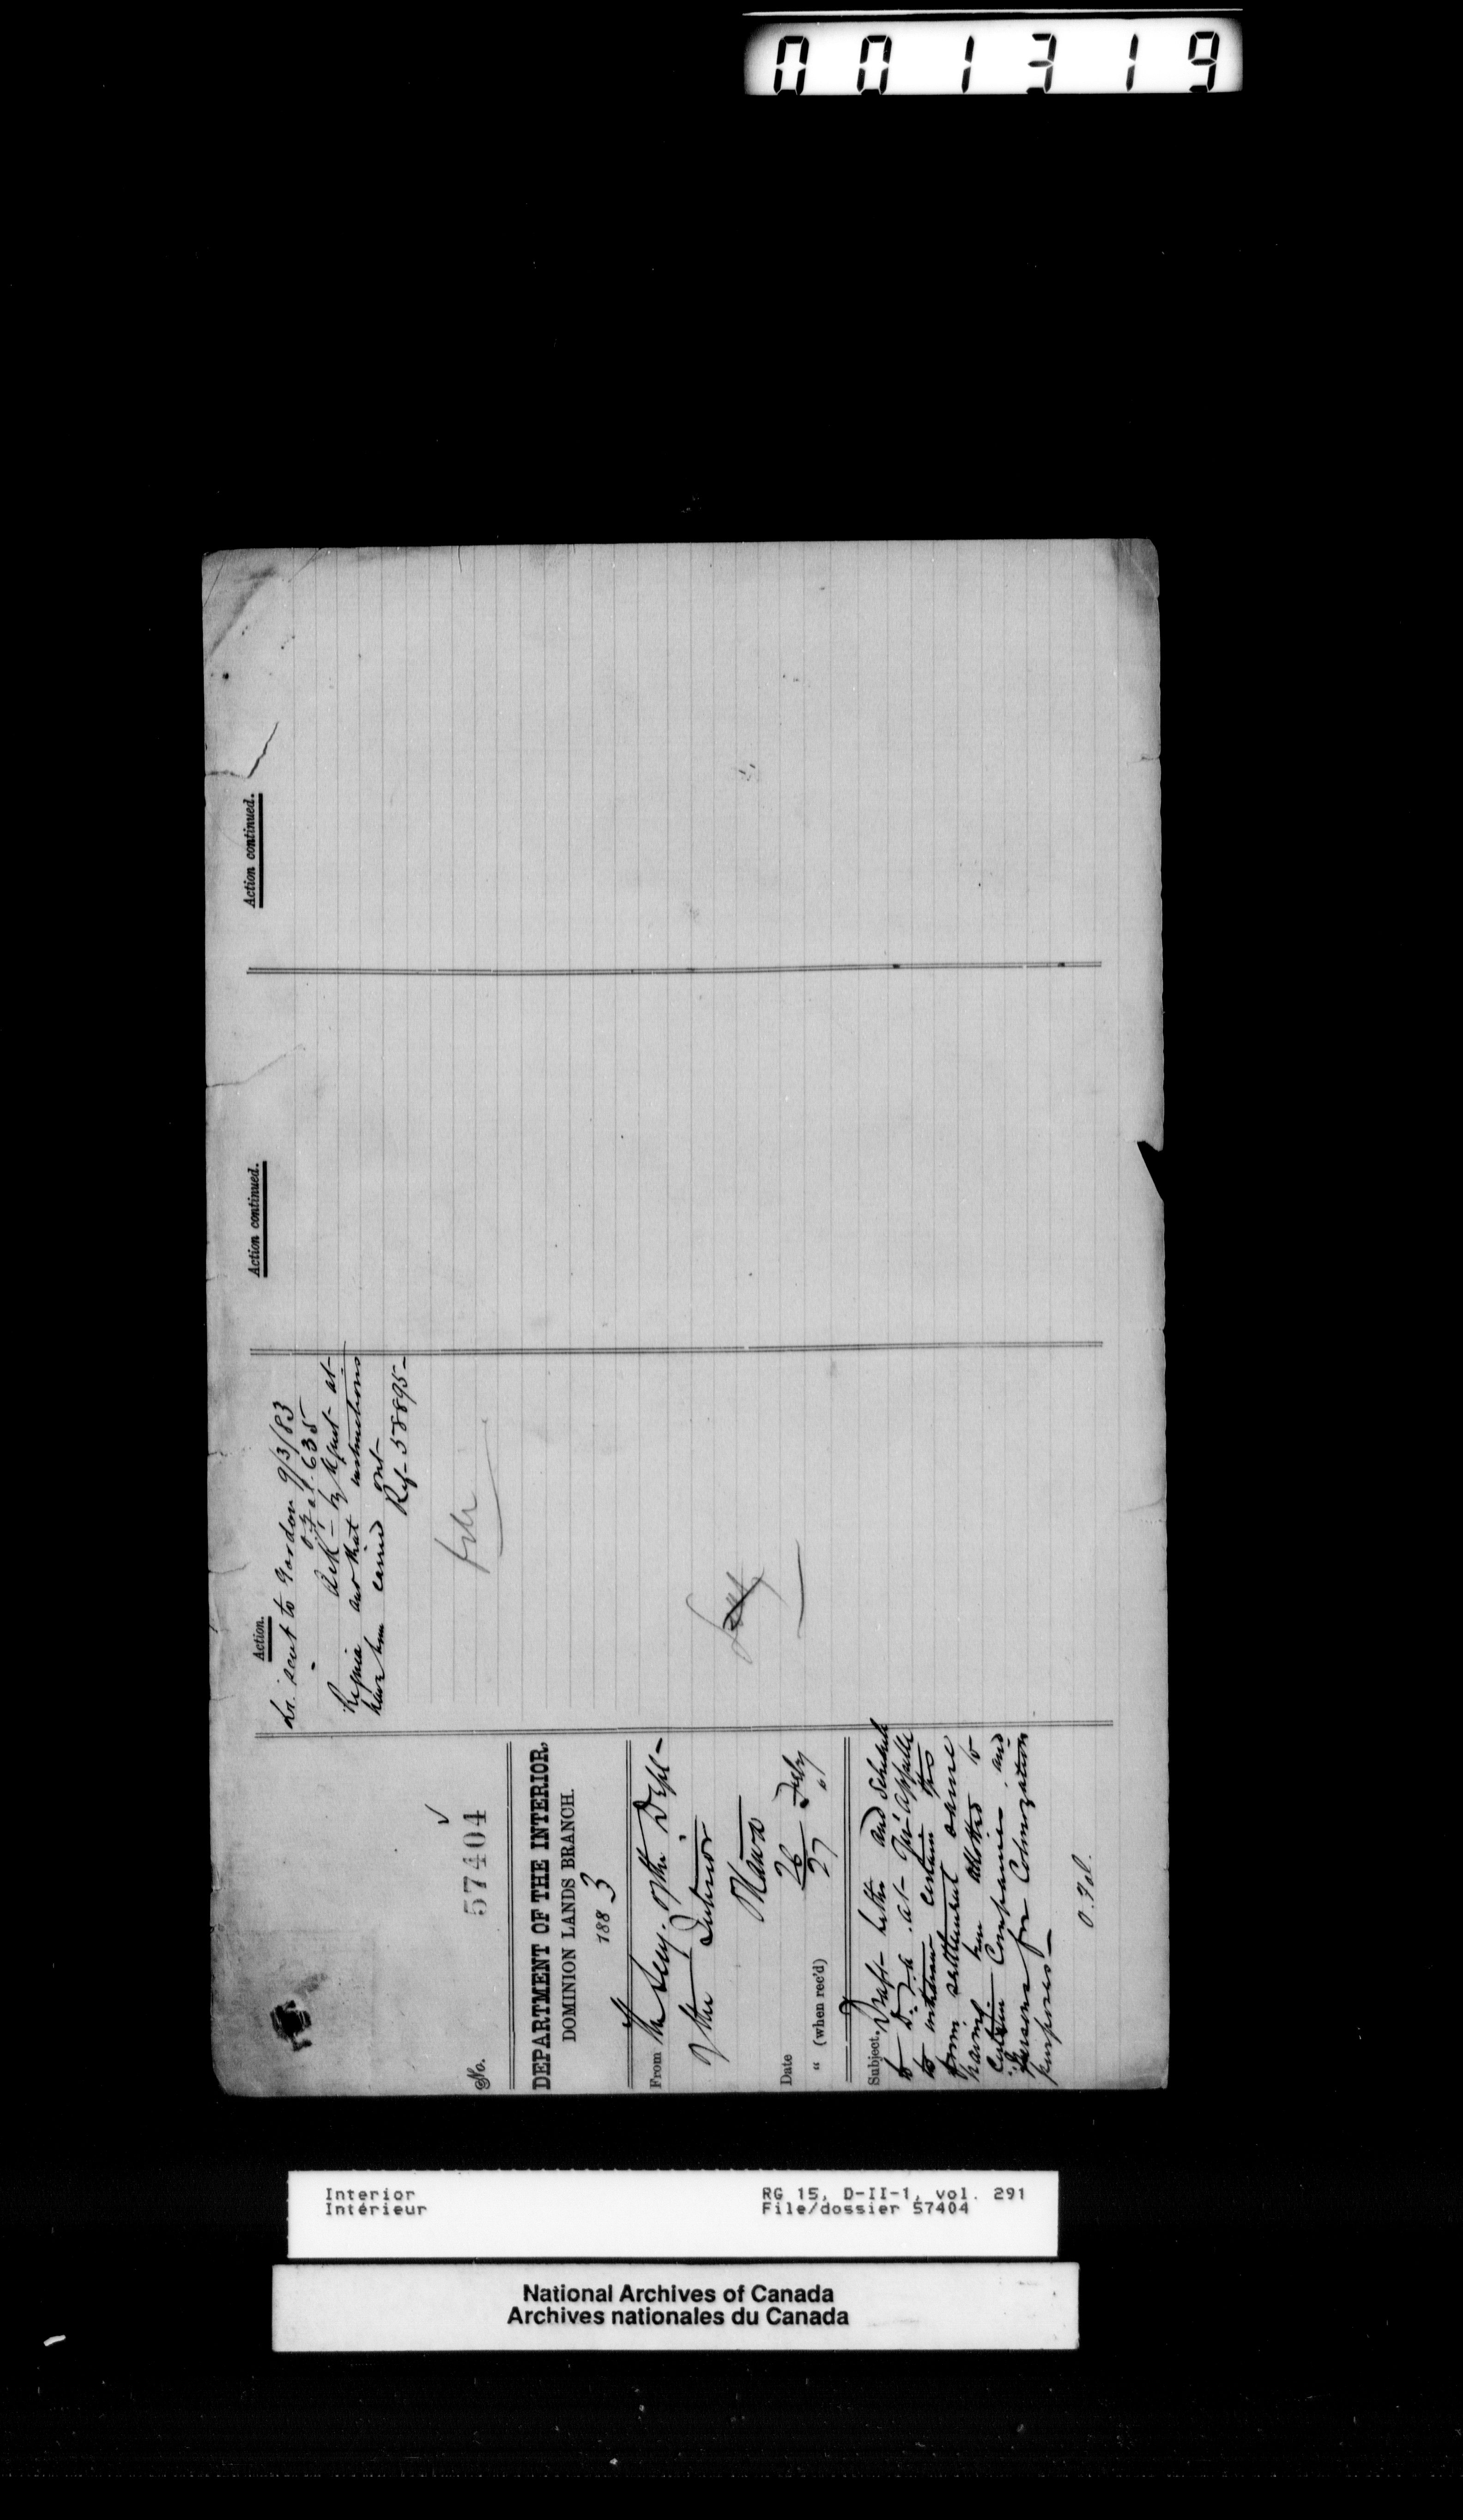 001319
No. 57404 ✓
DEPARTMENT OF THE INTERIOR,
DOMINION LANDS BRANCH.
1883
From the Secy. of the Dept-
of the Interior
Ottawa
Date 26 Feby
" (when rec'd) 27 "
Subject. Draft letter and Schedule
to D. L. a. at Qu'Appelle
to withdraw certain tps
from settlement same
having been allotted to
certain Companies and
persons for Colonization
purposes—
O. Fol.
Action.
Lr. sent to Gordon 9/3/83
o.f. 635
Ack- by Agent at
Regina and that instructions
have been carried out-
Ref- 58895-
file
Action continued.
Action continued.
Interior
Intérieur
RG 15, D-II-1, vol. 291
File/dossier 57404
National Archives of Canada
Archives nationales du Canada